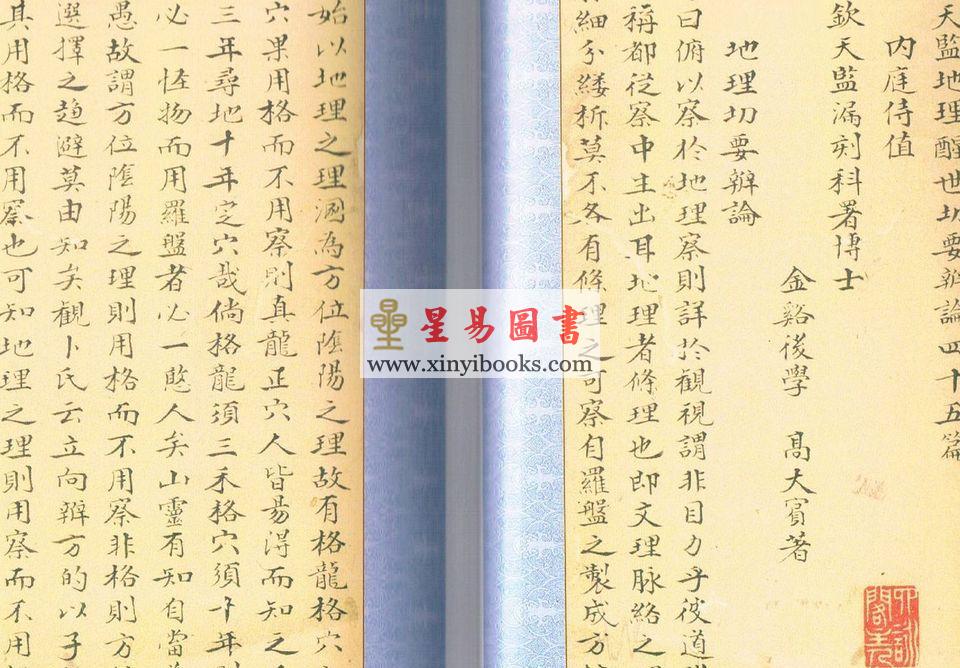 天監地理醒世切要辨論四十五篇
內庭侍值
欽天監漏刻科署博士
金谿後學 高大賓著
地理切要辨論
曰俯以察於地理察則詳於觀視謂非目力乎彼道
稱都從察中生出耳地理者條理也即文理脉絡之
細分縷析莫不各有條理之可察自羅盤之製成方
始以地理之理溷為方位陰陽之理故有格龍格穴
穴果用格而不用察則真龍正穴人皆易得而知之
三年尋地十年定穴哉倘格龍須三年格穴須十年
必一怪物而用羅盤者必一愍人矣山靈有知自當
愚故謂方位陰陽之理則用格而不用察非格則方
選擇之趨避莫由知矣觀卜氏云立向辨方的以子
其用格而不用察也可知地理之理則用察而不用
星易圖書
www.xinyibooks.com